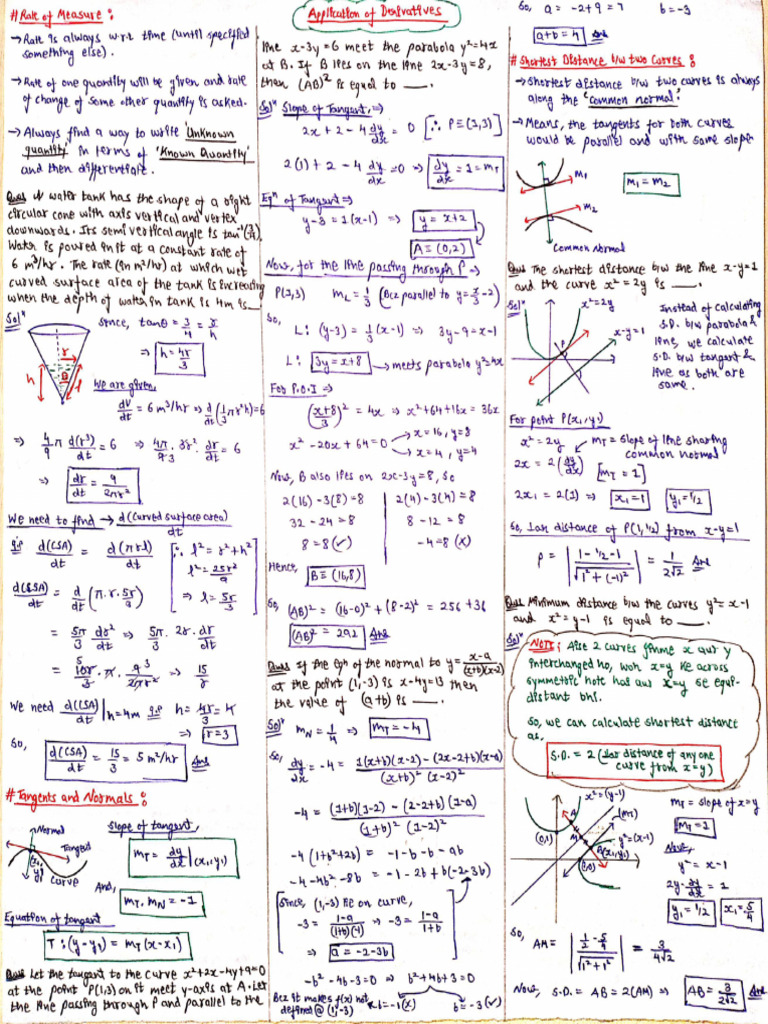 # Rate of Measure :
→ Rate is always w.r.t time (until specified
something else).
→ Rate of one quantity will be given and rate
of change of some other quantity is asked.
→ Always find a way to write 'Unknown
quantity' in terms of 'Known Quantity'
and then differentiate.
Ques A water tank has the shape of a right
circular cone with axis vertical and vertex
downwards. Its semi vertical angle is tan⁻¹(3/4).
Water is poured in it at a constant rate of
6 m³/hr. The rate (in m²/hr) at which wet
curved surface area of the tank is increasing
when the depth of water in tank is 4m is
Solⁿ
since, tanθ = 3/4 = r/h
⇒ h = 4r/3
h r θ l
We are given,
dV/dt = 6 m³/hr ⇒ d/dt (1/3 πr²h) = 6
⇒ 4/9 π d(r³)/dt = 6 ⇒ 4π/9 · 3r² · dr/dt = 6
⇒ dr/dt = 9/2πr²
We need to find → d(Curved surface area)/dt
d(CSA)/dt = d(πrl)/dt
[∵ l² = r² + h²
l² = 25r²/9
⇒ l = 5r/3]
d(CSA)/dt = d/dt (π.r.5r/3)
= 5π/3 dr²/dt ⇒ 5π/3 . 2r . dr/dt
= 10r/3 . π . 9/2πr² ⇒ 15/r
We need d(CSA)/dt | h=4m h = 4r/3 = 4
⇒ r=3
So, d(CSA)/dt = 15/3 = 5 m²/hr Ans
# Tangents and Normals :
Normal
Tangent
(x₁, y₁)
Curve
Slope of tangent,
m_T = dy/dx |(x₁,y₁)
And,
m_T . m_N = -1
Equation of tangent
T : (y-y₁) = m_T (x-x₁)
Ques Let the tangent to the curve x²+2x-4y+9=0
at the point P(1,3) on it meet y-axis at A. Let
the line passing through P and parallel to the
Application of Derivatives
line x-3y=6 meet the parabola y²=4x
at B. If B lies on the line 2x-3y=8,
then (AB)² is equal to __.
Solⁿ Slope of Tangent ⇒
2x + 2 - 4 dy/dx = 0 [∵ P ≡ (1,3)]
2(1) + 2 - 4 dy/dx = 0 ⇒ dy/dx = 1 = m_T
Eqⁿ of Tangent ⇒
y-3 = 1(x-1) ⇒ y = x+2
A ≡ (0,2)
Now, for the line passing through P ⇒
P(1,3) m_L = 1/3 (Bcz parallel to y = x/3 - 2)
So,
L : (y-3) = 1/3 (x-1) ⇒ 3y-9 = x-1
L : 3y = x+8 → meets parabola y²=4x
For P.O.I ⇒
(x+8/3)² = 4x ⇒ x²+64+16x = 36x
x² - 20x + 64 = 0 → x=16, y=8
→ x=4, y=4
Now, B also lies on 2x-3y=8, so
2(16) - 3(8) = 8 2(4) - 3(4) = 8
32 - 24 = 8 8 - 12 = 8
8 = 8 (✓) -4 = 8 (X)
Hence, B ≡ (16,8)
So, (AB)² = (16-0)² + (8-2)² = 256 + 36
(AB)² = 292 Ans
Ques If the eqn of the normal to y = x-a/(x+b)(x-2)
at the point (1,-3) is x-4y=13 then
the value of (a+b) is __.
Solⁿ m_N = 1/4 ⇒ m_T = -4
So, dy/dx = -4 = 1(x+b)(x-2) - (2x-2+b)(x-a)/(x+b)² (x-2)²
-4 = (1+b)(1-2) - (2-2+b)(1-a)/(1+b)² (1-2)²
-4(1+b²+2b) = -1-b-b-ab
-4-4b²-8b = -1-2b+b(-2-3b)
[Since, (1,-3) lie on curve,
-3 = 1-a/(1+b)(-1) ⇒ -3 = 1-a/1+b
⇒ a = -2-3b]
-b² - 4b - 3 = 0 ⇒ b²+4b+3 = 0
Bcz it makes f(x) not
defined @ (1,-3)
b=-1 (X) b=-3 (✓)
So, a = -2+9 = 7 b=-3
a+b = 4 Ans
# Shortest Distance b/w two Curves :
→ Shortest distance b/w two curves is always
along the 'common normal'.
→ Means, the tangents for both curves
would be parallel and with same slope
m₁
m₂
Common Normal
m₁ = m₂
Ques The shortest distance b/w the line x-y=1
and the curve x²=2y is __.
Solⁿ
x²=2y
x-y=1
P
Instead of calculating
S.D. b/w parabola &
line, we calculate
S.D. b/w tangent &
line as both are
same.
For point P(x₁, y₁)
x²=2y m_T = slope of line sharing
common normal
2x = 2(dy/dx) [m_T = 1]
2x₁ = 2(1) ⇒ x₁=1 y₁=1/2
So, ⊥ar distance of P(1,1/2) from x-y=1
P = |1 - 1/2 - 1/√1²+(-1)²| = 1/2√2 Ans
Ques Minimum distance b/w the curves y²=x-1
and x²=y-1 is equal to __.
Solⁿ
NOTE : Aise 2 curves jinme x aur y
interchanged ho, woh x=y ke across
symmetric hote hai aur x=y se equi-
distant bhi.
So, we can calculate shortest distance
as,
S.D. = 2 (⊥ar distance of any one
curve from x=y)
x²=(y-1)
(m_T)
y²=(x-1)
A
M
P(x₁,y₁)
(0,1)
(1,0)
m_T = slope of x=y
m_T = 1
Now,
y² = x-1
2y dy/dx = 1
y₁ = 1/2 x₁ = 5/4
So, AM = |1/2 - 5/4/√1²+1²| = 3/4√2
Now, S.D. = AB = 2(AM) ⇒ AB = 3/2√2 Ans